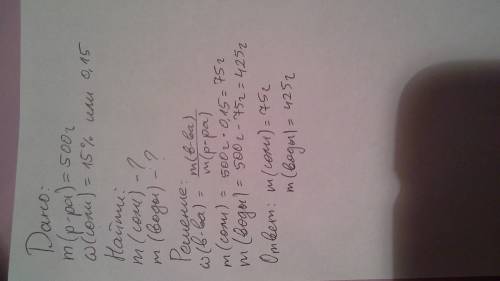 Дано:
m(р-ра) = 500г
ω(соли) = 15% или 0,15
Найти:
m(соли) - ?
m(воды) - ?
Решение:
ω(в-ва) = m(в-ва) / m(р-ра)
m(соли) = 500г · 0,15 = 75г
m(воды) = 500г - 75г = 425г
Ответ: m(соли) = 75г
m(воды) = 425г